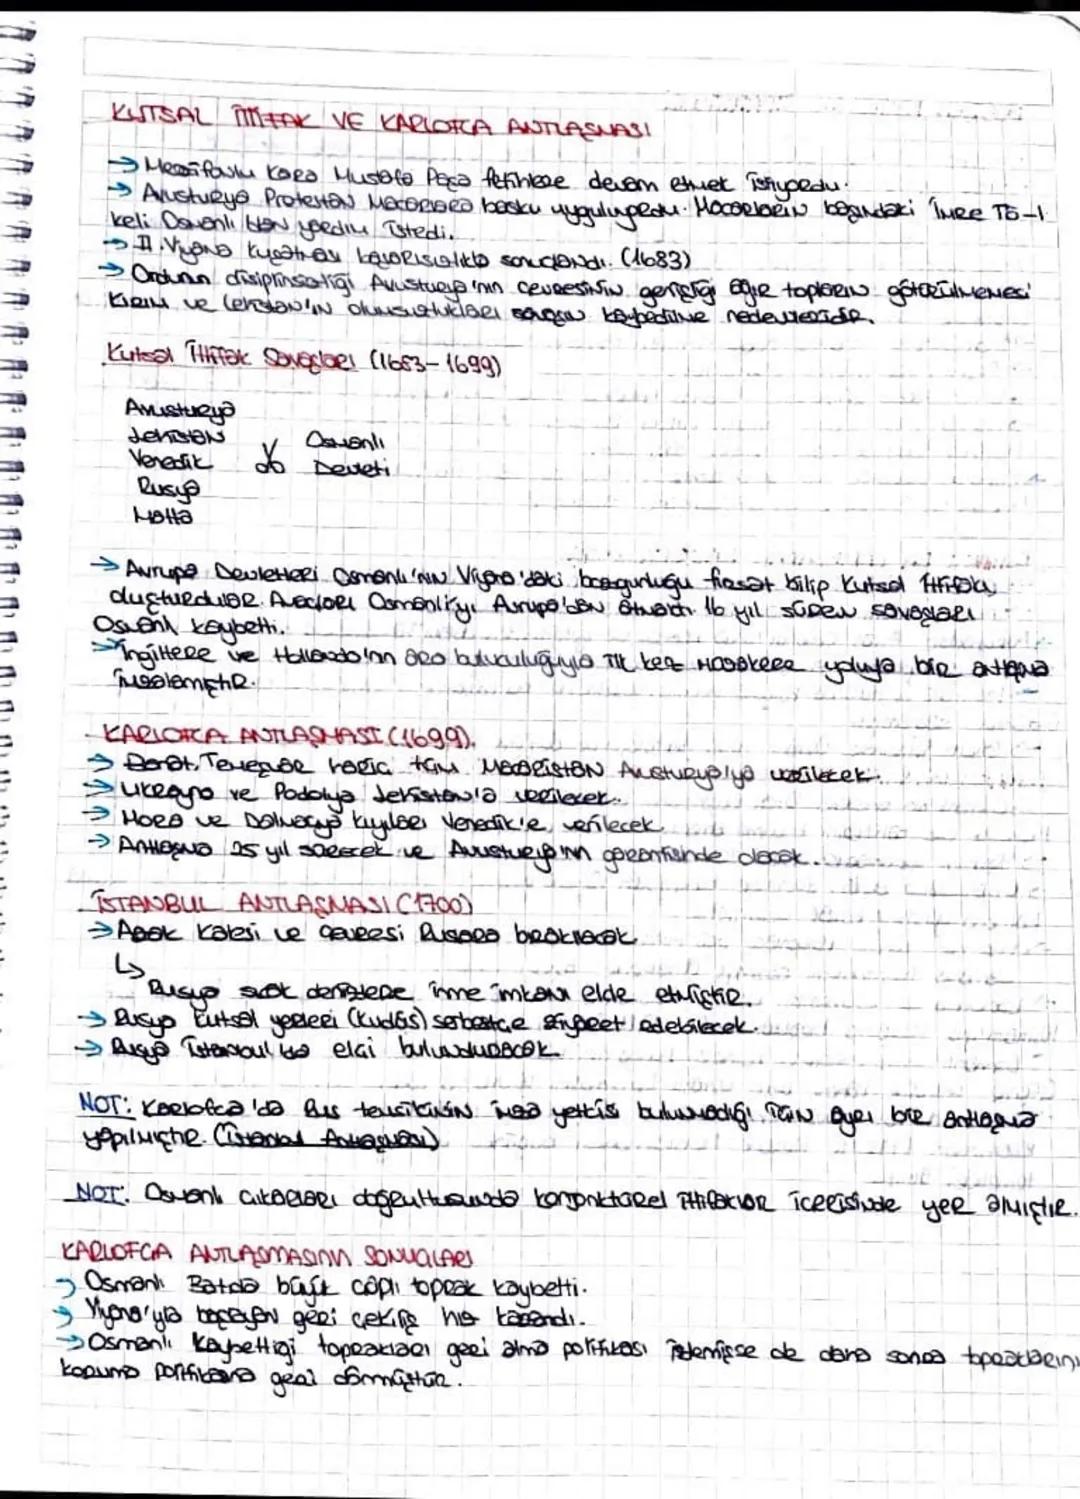 KUTSAL İTTİFAK VE KARLOFÇA ANTLAŞMASI
→ Merzifonlu Kara Mustafa Paşa fetihlere devam etmek istiyordu.
→ Avusturya Protestan Macarlara baskı uyguluyordu. Macarların başındaki İmre Tö-
keli Osmanlı'dan yardım istedi.
→ II. Viyana kuşatması başarısızlıkla sonuçlandı. (1683)
→ Ordunun disiplinsizliği Avusturya'nın çevresinin genişliği ağır topların götürülmemesi
Kırım ve Lehistan'ın olumsuzlukları savaşın kaybedilme nedenleridir.
Kutsal İttifak Savaşları (1683-1699)
Avusturya
Lehistan
Venedik
Rusya
Malta
Osmanlı
Devleti
→ Avrupa Devletleri Osmanlı'nın Viyana'daki bozgunluğu fırsat bilip Kutsal İttifakı
oluşturdular. Amaçları Osmanlı'yı Avrupa'dan atmaktı. 16 yıl süren savaşları
Osmanlı kaybetti.
→ İngiltere ve Hollanda'nın ara buluculuğuyla ilk kez müzakere yoluyla bir antlaşma
imzalamıştır.
KARLOFÇA ANTLAŞMASI (1699).
→ Banat, Temeşvar hariç tüm Macaristan Avusturya'ya verilecek.
→ Ukrayna ve Podolya Lehistan'a verilecek.
→ Mora ve Dalmaçya kıyıları Venedik'e verilecek.
→ Antlaşma 25 yıl sürecek ve Avusturya'nın garantisinde olacak.
İSTANBUL ANTLAŞMASI (1700)
→ Azak Kalesi ve çevresi Ruslara bırakılacak.
↳
Rusya sıcak denizlere inme imkanı elde etmiştir.
→ Rusya kutsal yerleri (Kudüs) serbestçe ziyaret edebilecek.
→ Rusya İstanbul'da elçi bulunduracak.
NOT: Karlofça'da Rus temsilcinin imza yetkisi bulunmadığı için ayrı bir antlaşma
yapılmıştır. (İstanbul Antlaşması)
NOT: Osmanlı çıkarları doğrultusunda konjonktürel ittifaklar içerisinde yer almıştır.
KARLOFÇA ANTLAŞMASININ SONUÇLARI
→ Osmanlı Batıda büyük çaplı toprak kaybetti.
→ Viyana'yla başlayan geri çekiliş hız kazandı.
→ Osmanlı kaybettiği toprakları geri alma politikası izlemişse de daha sonra topraklarını
koruma politikasına geri dönmüştür.